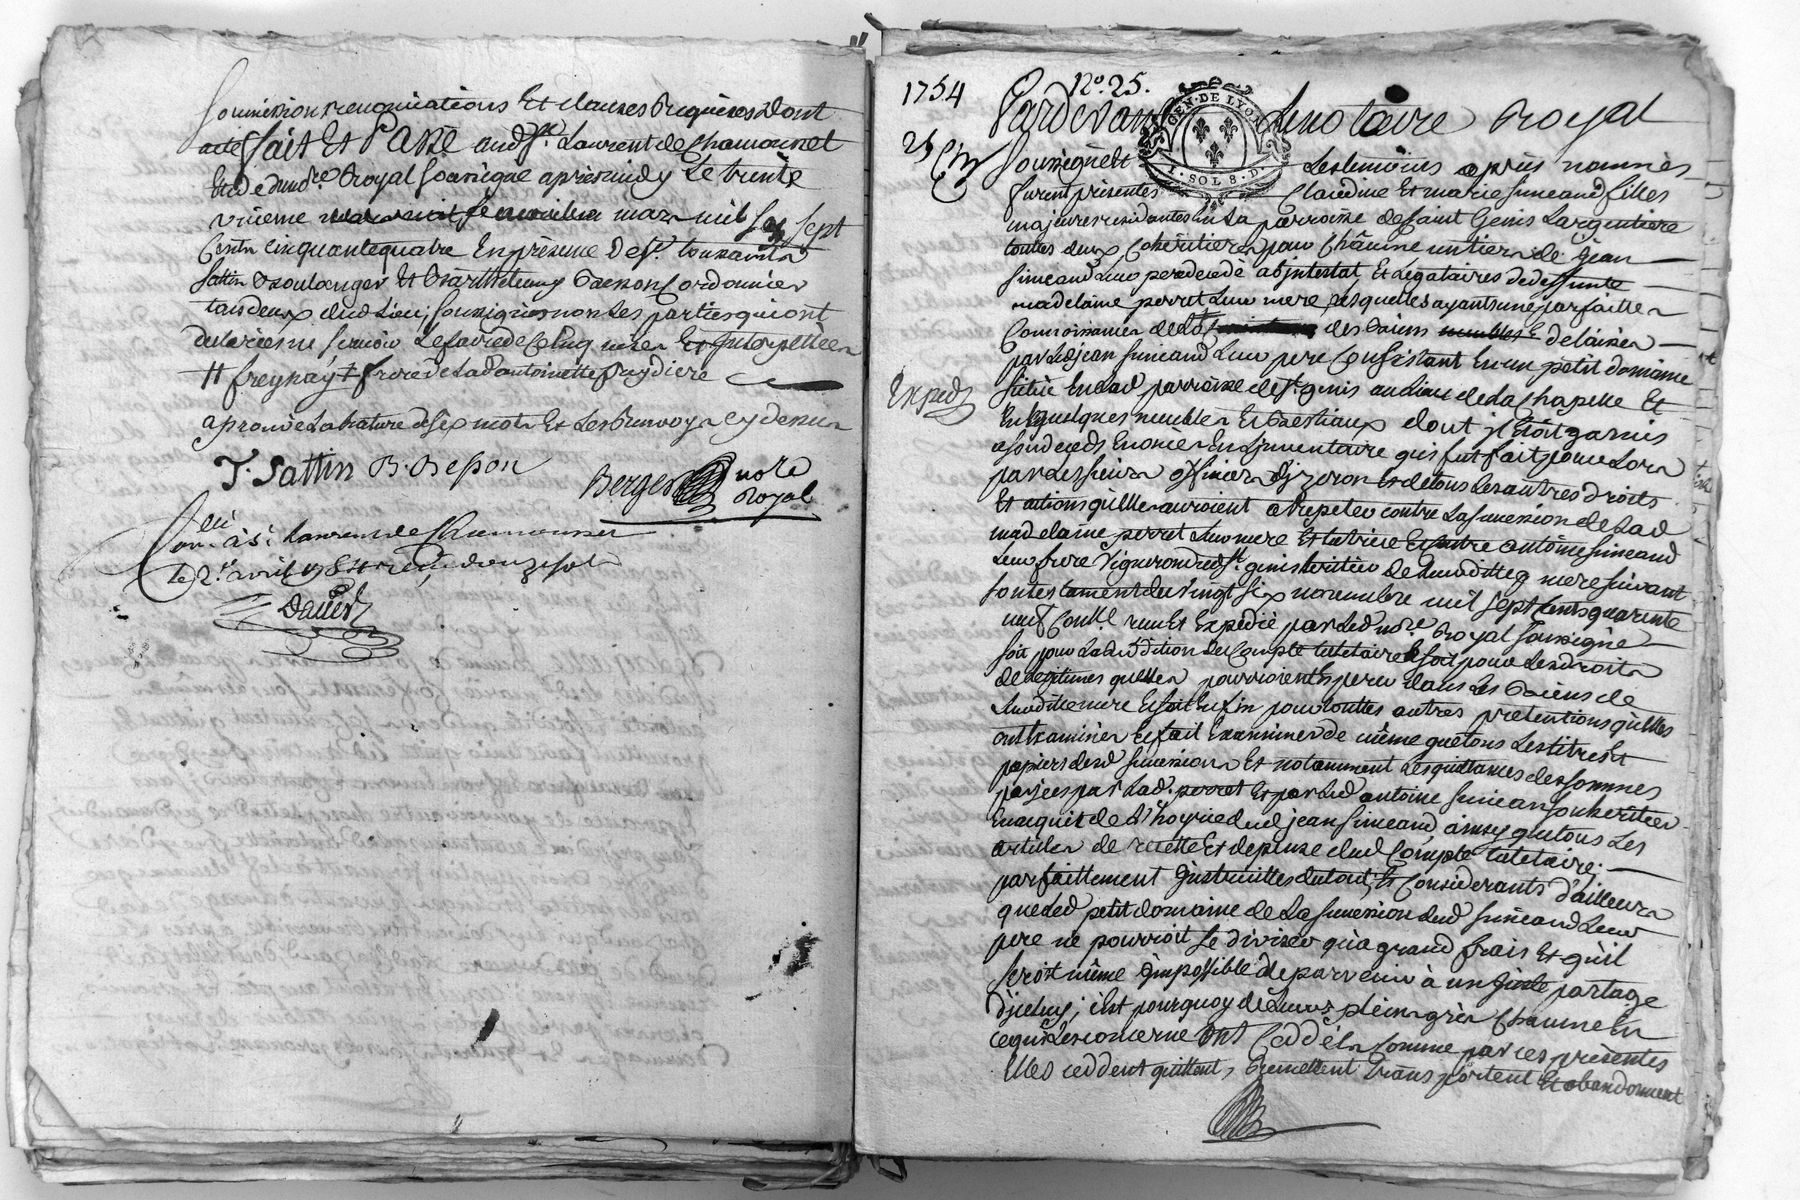 soumission renonciations Et clauses Requises dont
acte fait Et Passé aud st. Laurent de chamousset
Royal soussigne apres midy Le trente
unieme mars mil sept
Cents Cinquante quatre En présence De sr. toussaints
sattin Boulanger Et Barthelemy Besson Cordonnier
tous deux dud Lieu, soussignés non Les parties qui ont
declarés ne scavoir Le faire de Ce Enquises Et Interpellées
frere de Lad antoinette
aprouvé La rature de six mots Et Les Renvoys cy dessus
T. Sattin B. Besson
Berger nore
Royal
Conllé à st Laurent de Chamousset
le 2e. avril 1754 reçu douze sols
1754
No. 25.
25
GEN. DE LYON
1. SOL 8. D.
Pardevant Le notaire Royal
soussigné Et Les temoins après nommés
furent présentes Claudine Et marie simeand filles
majeures residantes En La parroisse de saint Genis Largentiere
toutes deux Cohéritieres pour Chacune un tiers de jean
simeand Leur pere decedé abintestat, Et Legataires de deffunte
madelaine perret Leur mere, Lesquelles ayants une parfaitte
Connoissance des Biens delaissés
par Led jean simeand Leur pere Consistant En un petit domaine
Exped
situé En Lad parroisse de st. genis au Lieu de La Chapelle Et
En quelques meubles Et Bestiaux dont jl Etoit garnis
a son deceds Enoncés En Linventaire qui fut fait pour Lors
par Les sieurs officiers dyzeron Et de tous Les autres droits
Et actions qu'elles auroient a repeter contre La succession de Lad
madelaine perret Leur mere Et tutrice Et contre antoine simeand
Leur frere Vigneron dud st. genis heritier de Leurditte mere suivant
son testament du Vingt six novembre mil sept Cents quarente
neuf Conllé reçu Et Expedié par Led nore. Royal soussigné
soit pour La Reddition de Compte tutelaire soit pour Les droits
de Legitimes qu'elles pourroient Esperer dans Les Biens de
Leurditte mere Et soit Enfin pour touttes autres pretentions qu'elles
ont Examinés Et fait Examiner de même que tous Les titres Et
papiers desd successions Et notamment Les quittances des sommes
payées par Lad. perret Et par Led antoine simean son heritier
En acquit de L'hoyrie dud jean simeand, ainsy que tous Les
articles de recette Et depense dud Compte tutelaire;
parfaittement Instruittes du tout, Et Considerants d'ailleurs
que Led petit domaine de La succession dud simeand Leur
pere ne pourroit se diviser qu'a grand frais Et qu'il
seroit même Impossible de parvenir à un juste partage
d'jceluy; c'est pourquoy de Leurs pleins grés Chacune En
ce qui Les concerne ont Ceddé Comme par ces présentes
Elles ceddent quittent, Remettent Transportent Et abandonnent